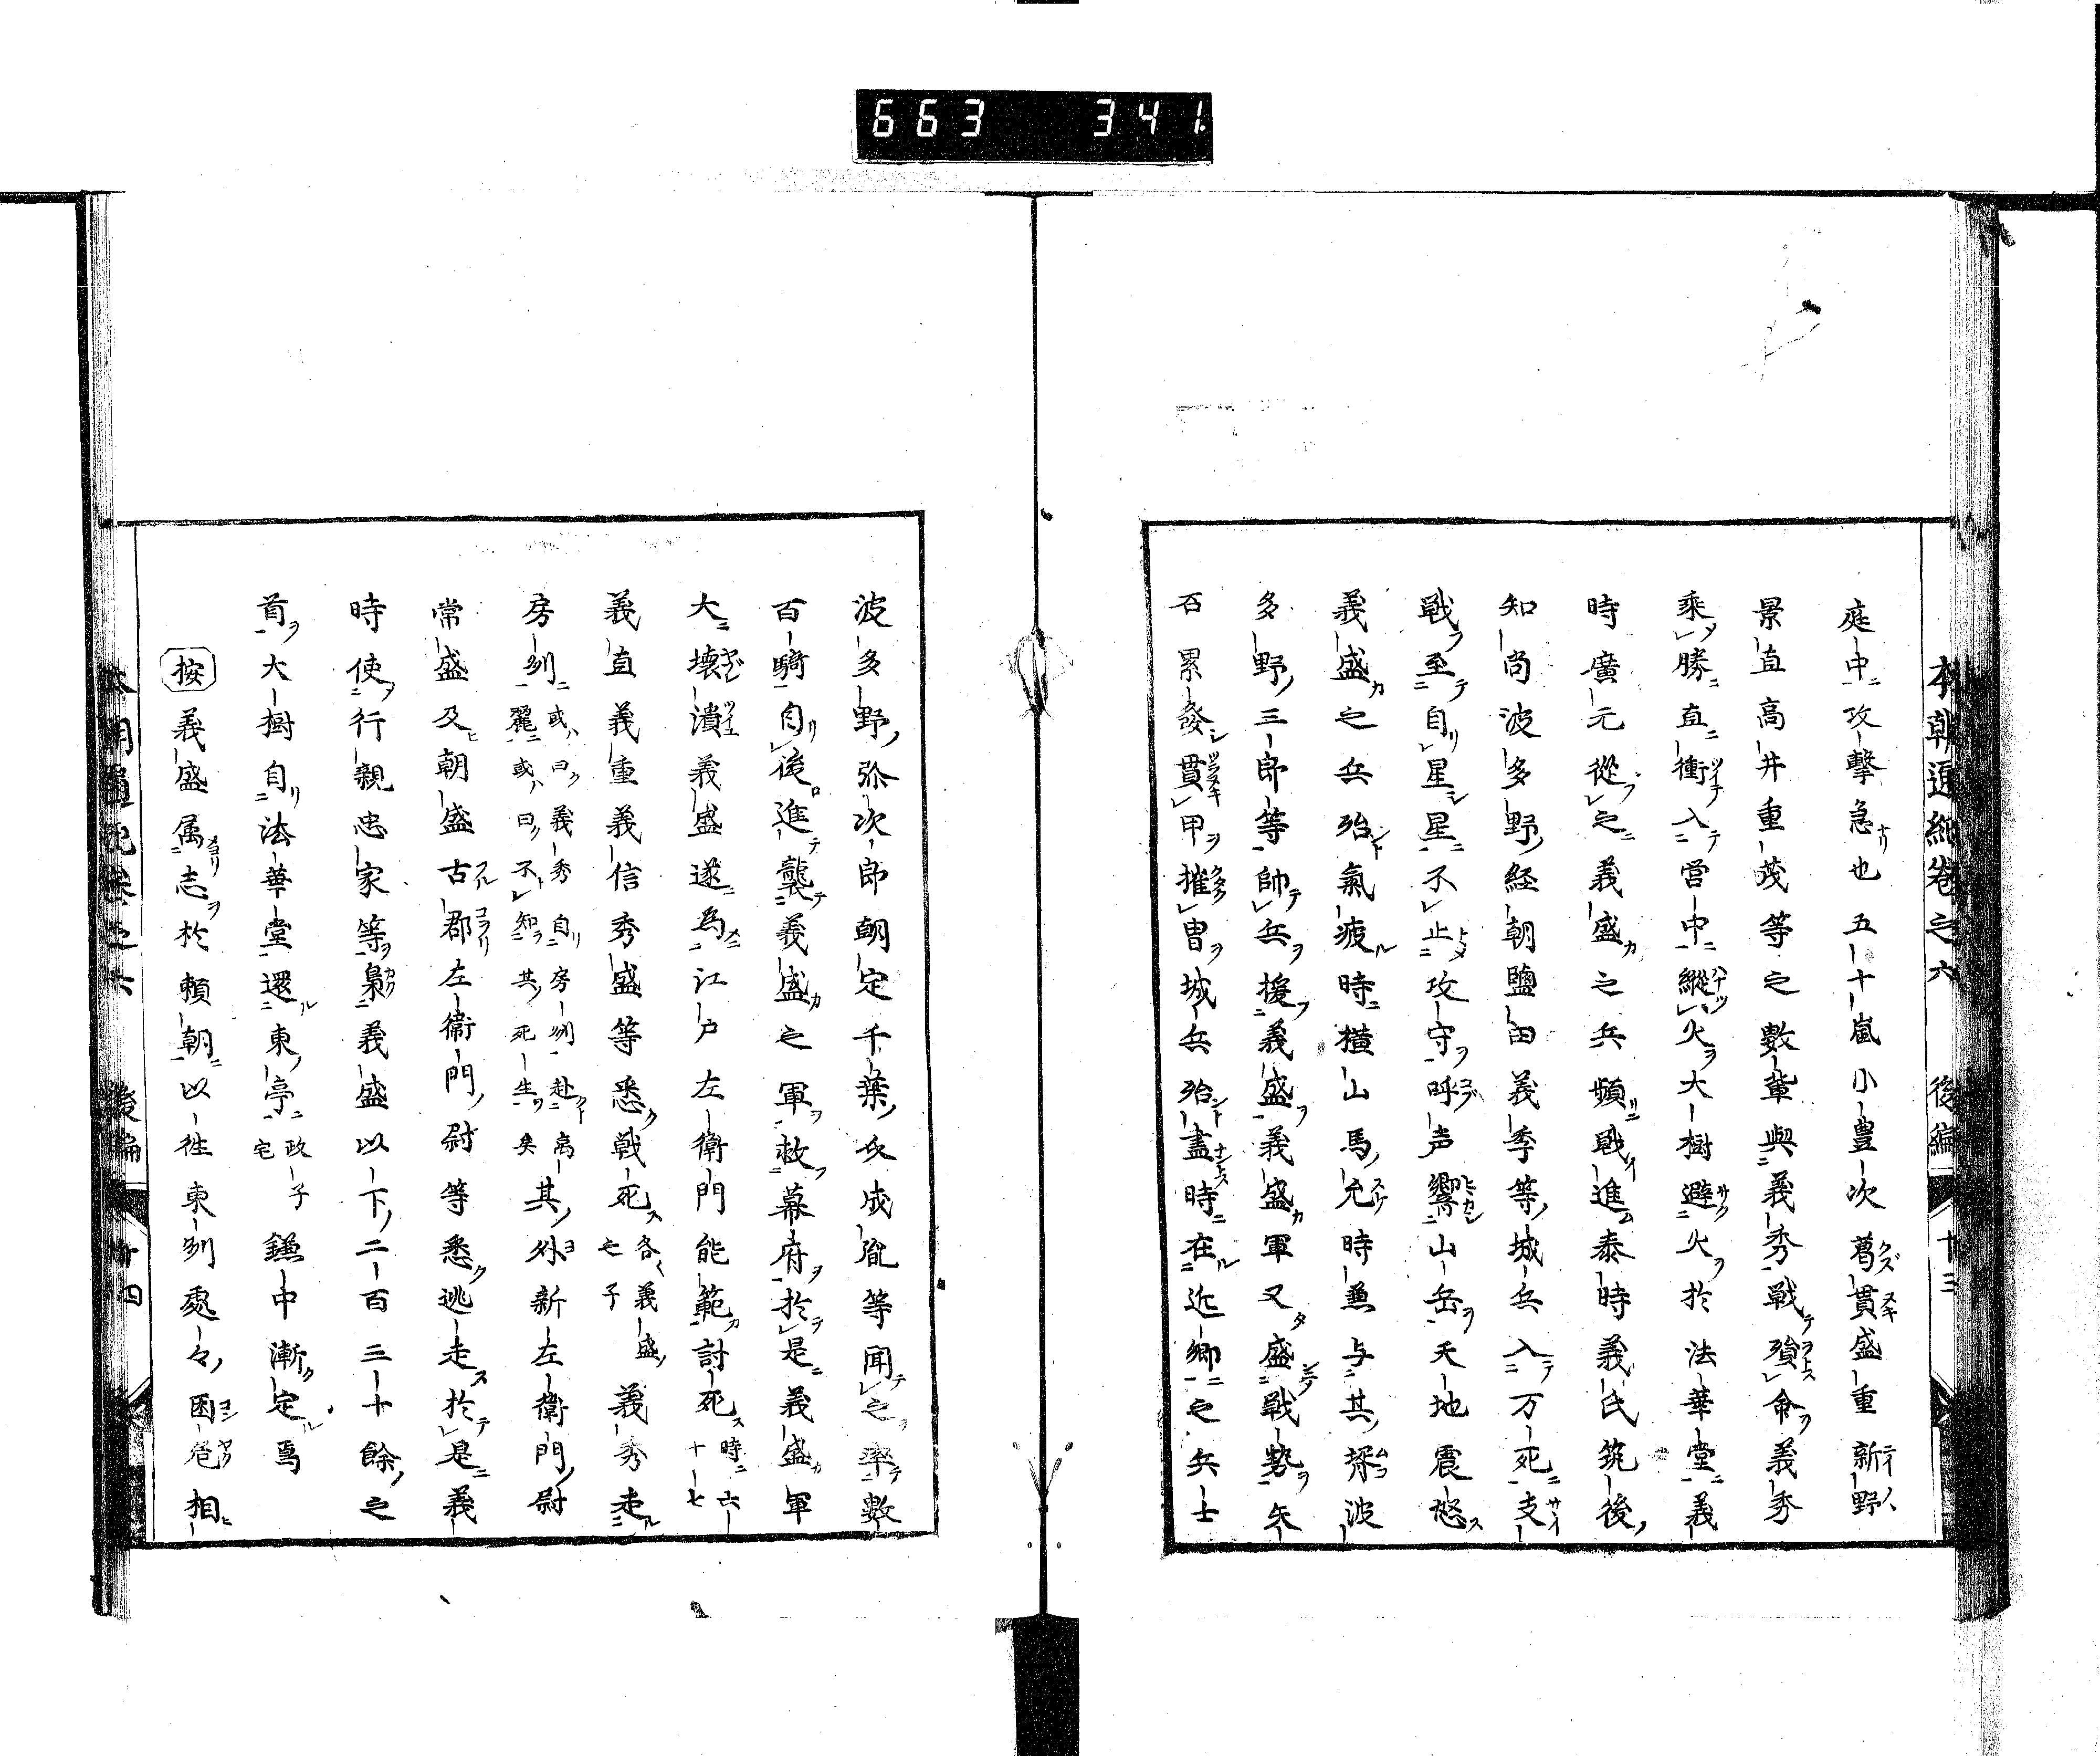 663 341
本朝通紀卷之六 後編 十三
庭中攻擊急也五十嵐小豊次葛貫盛重新野
景直高井重茂等之數輩與義秀戰殞命義秀
乘勝直衝入営中縱火大樹避火於法華堂義
時廣元從之義盛之兵頻戰進泰時義氏筑後
知尚波多野経朝鹽田義季等城兵入万死支
戰至自星星不止攻守呼声響山岳天地震怒
義盛之兵殆氣疲時横山馬允時兼与其壻波
多野三郎等帥兵援義盛義盛軍又盛戰勢矢
石累發貫甲摧冑城兵殆盡時在近郷之兵士
波多野弥次郎朝定千葉兵成胤等聞之率數
百騎自後進襲義盛之軍救幕府於是義盛軍
大壊潰義盛遂為江戸左衛門能範討死時六十七
義直義重義信秀盛等悉戰死各義盛七子義秀走
房州或曰義秀自房州赴高麗或曰不知其死生矣其外新左衛門尉
常盛及朝盛古郡左衛門尉等悉逃走於是義
時使行親忠家等梟義盛以下二百三十餘之
首大樹自法華堂還東亭政子宅鎌中漸定焉
按義盛属志於頼朝以往東州處々困危相
後編 十四